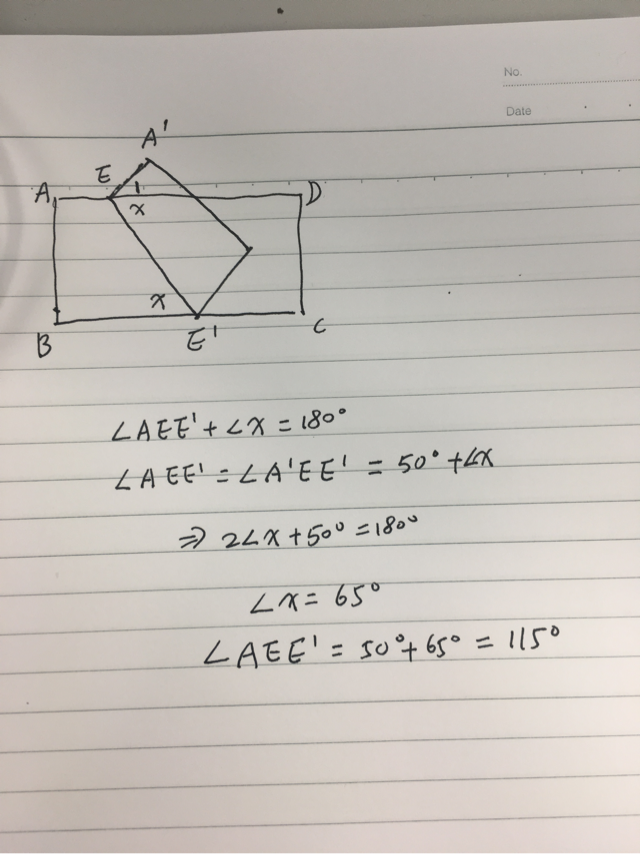 No.
Date
A'
E
A
1
D
x
x
B
E'
C
∠AEE' + ∠x = 180°
∠AEE' = ∠A'EE' = 50° + ∠x
⇒ 2∠x + 50° = 180°
∠x = 65°
∠AEE' = 50° + 65° = 115°